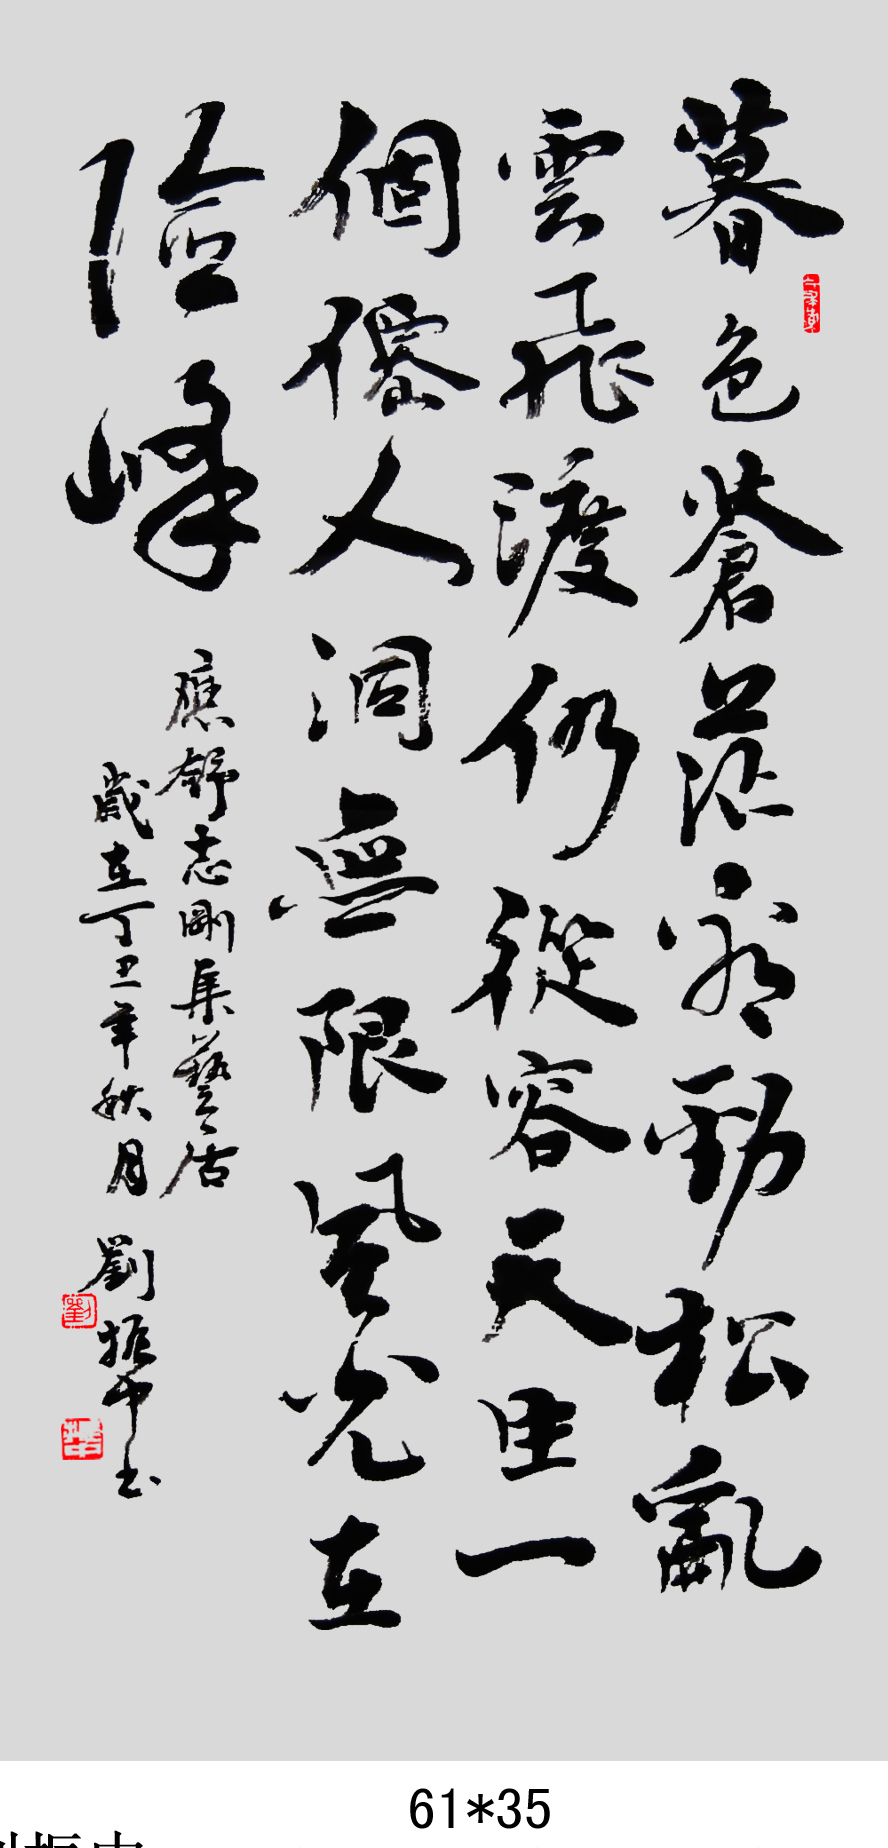 暮色蒼茫看勁松亂
雲飛渡仍從容天生一
個僊人洞無限風光在
險峰
應舒志剛集藝居
歲在丁丑年秋月 劉振中书
劉
61*35